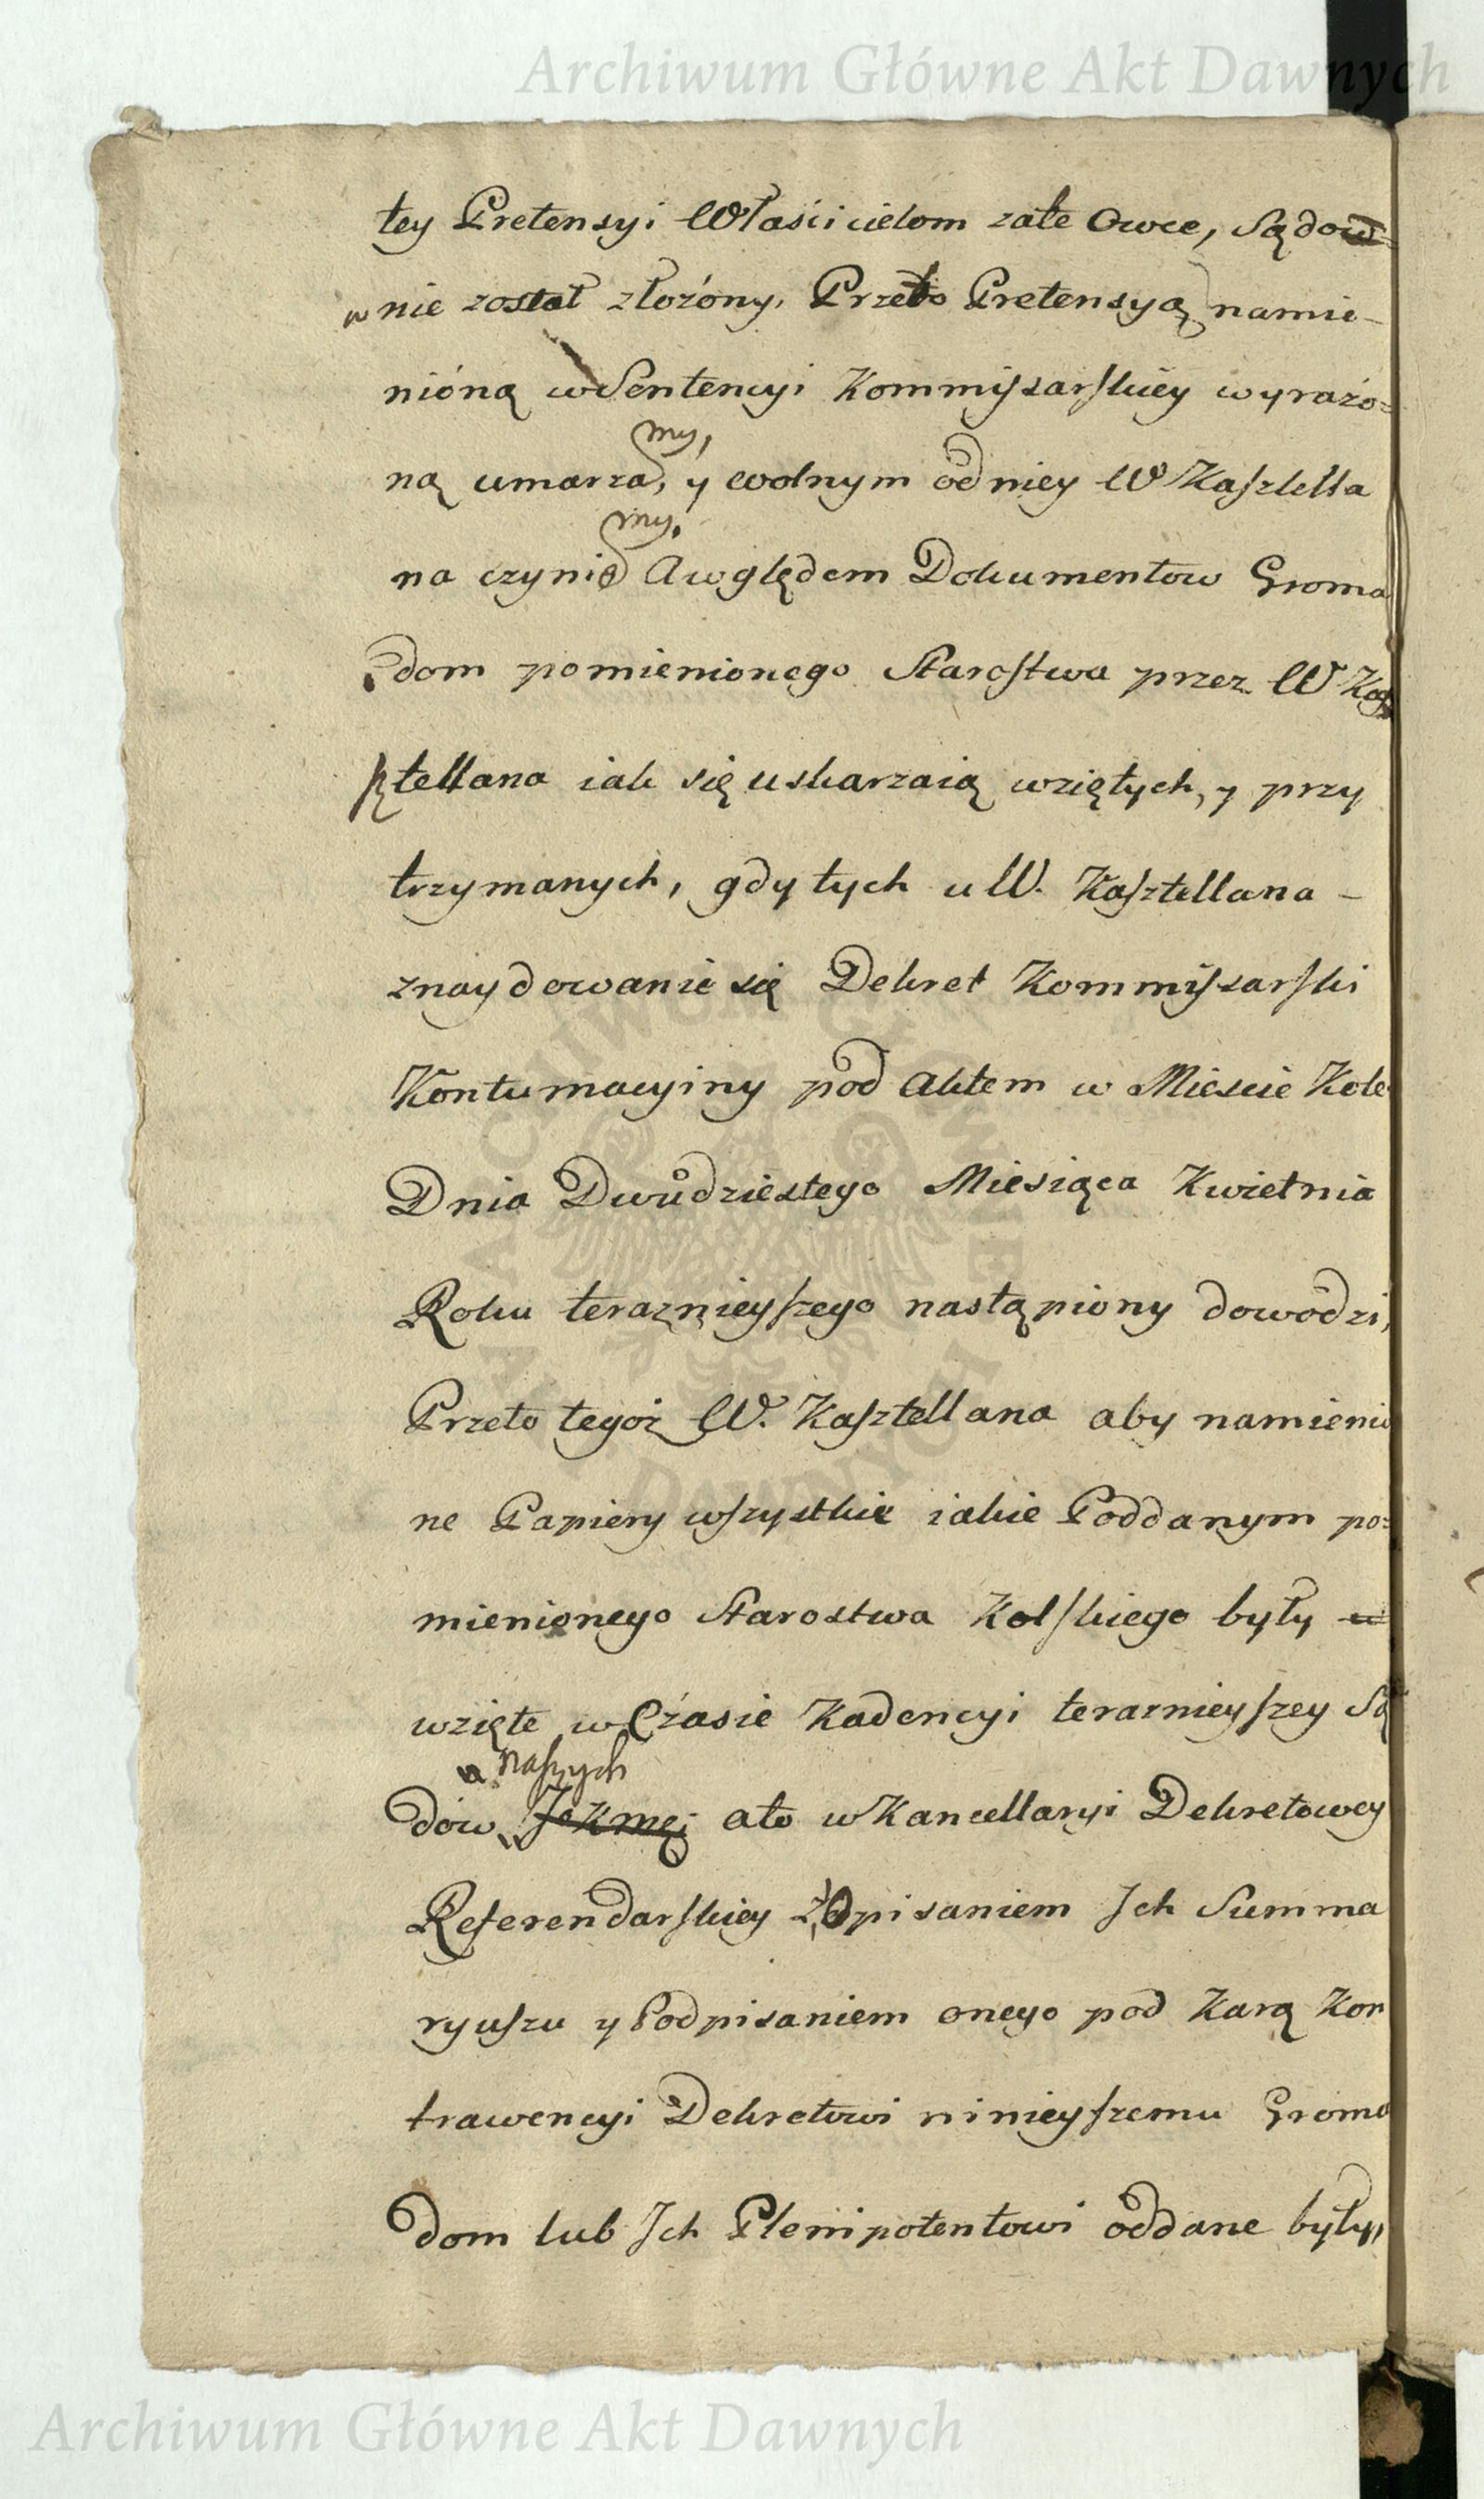 Archiwum Główne Akt Dawnych
tey Pretensyi Właścicielom zate Owce, Sądow=
w nie został złożóny, Przeto Pretensyą namie-
nióną w Sentencyi Kommissarskiey wyrażo=
my,
ną umarza, y wolnym od niey W Kasztella
my,
na czynie A względem Dokumentow Groma
dom pomienionego Starostwa przez W Kas
sztellana iak się uskarzaią wziętych, y przy
trzymanych, gdy tych u W. Kasztellana -
znaydowanie się Dekret Kommissarski
Kontumacyiny pod Aktem w Mieście Kole
Dnia Dwůdziestego Miesiąca Kwietnia
Roku teraznieyszego nastąpiony dowodzi,
Przeto tegoż W. Kasztellana aby namienio
ne Papiery wszystkie iakie Poddanym po=
mienionego Starostwa Kolskiego były u
wzięte w Czasie Kadencyi teraznieyszey Są
naszych
dów JeKmci ato w Kancellaryi Dekretowey
Referendarskiey z Opisaniem Jch Summa
ryuszu y Podpisaniem onego pod Karą Kon
trawencyi Dekretowi ninieyszemu Groma
dom lub Jch Plenipotentowi oddane były,
Archiwum Główne Akt Dawnych